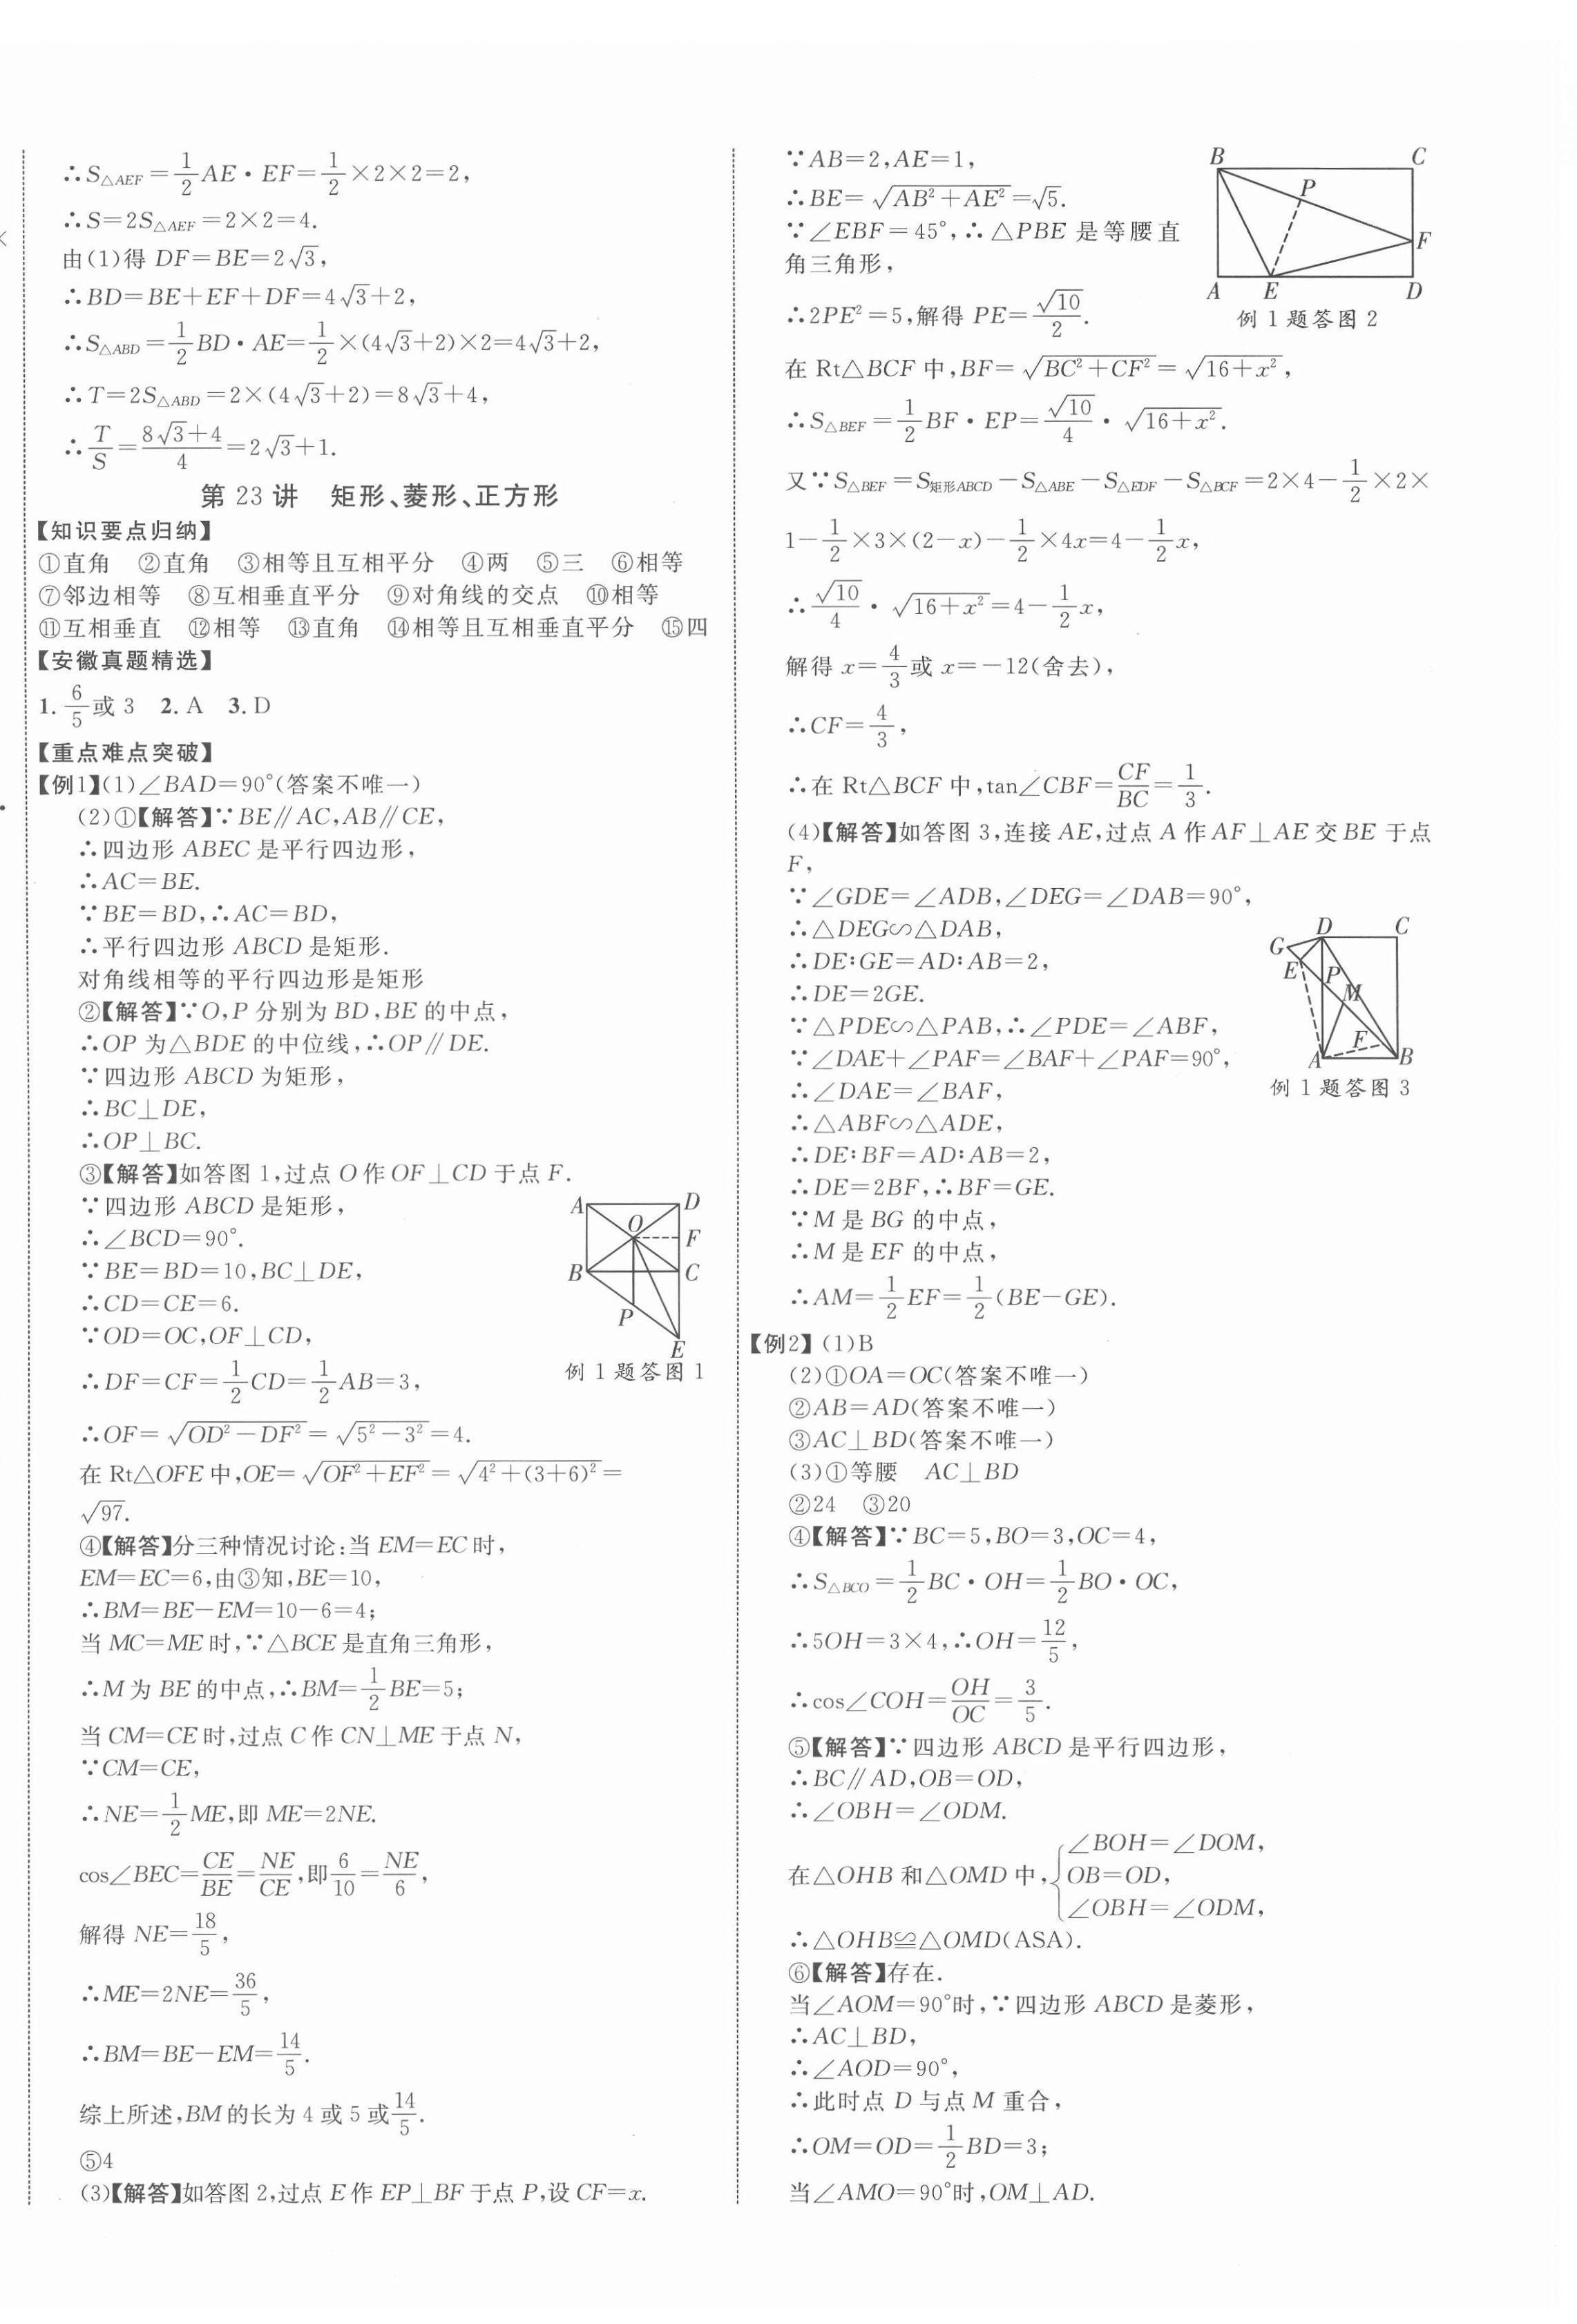 ∴S△AEF=1/2AE·EF=1/2×2×2=2,
∴S=2S△AEF=2×2=4.
由(1)得 DF=BE=2√3,
∴BD=BE+EF+DF=4√3+2,
∴S△ABD=1/2BD·AE=1/2×(4√3+2)×2=4√3+2,
∴T=2S△ABD=2×(4√3+2)=8√3+4,
∴T/S=(8√3+4)/4=2√3+1.
第 23 讲　矩形、菱形、正方形
【知识要点归纳】
①直角　②直角　③相等且互相平分　④两　⑤三　⑥相等
⑦邻边相等　⑧互相垂直平分　⑨对角线的交点　⑩相等
⑪互相垂直　⑫相等　⑬直角　⑭相等且互相垂直平分　⑮四
【安徽真题精选】
1. 6/5或 3　2. A　3. D
【重点难点突破】
【例1】(1)∠BAD=90°(答案不唯一)
(2)①【解答】∵BE∥AC,AB∥CE,
∴四边形 ABEC 是平行四边形,
∴AC=BE.
∵BE=BD,∴AC=BD,
∴平行四边形 ABCD 是矩形.
对角线相等的平行四边形是矩形
②【解答】∵O,P 分别为 BD,BE 的中点,
∴OP 为△BDE 的中位线,∴OP∥DE.
∵四边形 ABCD 为矩形,
∴BC⊥DE,
∴OP⊥BC.
③【解答】如答图 1,过点 O 作 OF⊥CD 于点 F.
∵四边形 ABCD 是矩形,
∴∠BCD=90°.
∵BE=BD=10,BC⊥DE,
∴CD=CE=6.
∵OD=OC,OF⊥CD,
∴DF=CF=1/2CD=1/2AB=3,
A D O F B C P E
例 1 题答图 1
∴OF=√(OD²-DF²)=√(5²-3²)=4.
在 Rt△OFE 中,OE=√(OF²+EF²)=√(4²+(3+6)²)=
√97.
④【解答】分三种情况讨论:当 EM=EC 时,
EM=EC=6,由③知,BE=10,
∴BM=BE-EM=10-6=4;
当 MC=ME 时,∵△BCE 是直角三角形,
∴M 为 BE 的中点,∴BM=1/2BE=5;
当 CM=CE 时,过点 C 作 CN⊥ME 于点 N,
∵CM=CE,
∴NE=1/2ME,即 ME=2NE.
cos∠BEC=CE/BE=NE/CE,即6/10=NE/6,
解得 NE=18/5,
∴ME=2NE=36/5,
∴BM=BE-EM=14/5.
综上所述,BM 的长为 4 或 5 或14/5.
⑤4
(3)【解答】如答图 2,过点 E 作 EP⊥BF 于点 P,设 CF=x.
∵AB=2,AE=1,
∴BE=√(AB²+AE²)=√5.
∵∠EBF=45°,∴△PBE 是等腰直
角三角形,
∴2PE²=5,解得 PE=√10/2.
B C P F A E D
例 1 题答图 2
在 Rt△BCF 中,BF=√(BC²+CF²)=√(16+x²),
∴S△BEF=1/2BF·EP=√10/4·√(16+x²).
又∵S△BEF=S矩形ABCD-S△ABE-S△EDF-S△BCF=2×4-1/2×2×
1-1/2×3×(2-x)-1/2×4x=4-1/2x,
∴√10/4·√(16+x²)=4-1/2x,
解得 x=4/3或 x=-12(舍去),
∴CF=4/3,
∴在 Rt△BCF 中,tan∠CBF=CF/BC=1/3.
(4)【解答】如答图 3,连接 AE,过点 A 作 AF⊥AE 交 BE 于点
F,
∵∠GDE=∠ADB,∠DEG=∠DAB=90°,
∴△DEG∽△DAB,
∴DE∶GE=AD∶AB=2,
∴DE=2GE.
∵△PDE∽△PAB,∴∠PDE=∠ABF,
∵∠DAE+∠PAF=∠BAF+∠PAF=90°,
∴∠DAE=∠BAF,
D C G E P M F A B
例 1 题答图 3
∴△ABF∽△ADE,
∴DE∶BF=AD∶AB=2,
∴DE=2BF,∴BF=GE.
∵M 是 BG 的中点,
∴M 是 EF 的中点,
∴AM=1/2EF=1/2(BE-GE).
【例2】(1)B
(2)①OA=OC(答案不唯一)
②AB=AD(答案不唯一)
③AC⊥BD(答案不唯一)
(3)①等腰　AC⊥BD
②24　③20
④【解答】∵BC=5,BO=3,OC=4,
∴S△BCO=1/2BC·OH=1/2BO·OC,
∴5OH=3×4,∴OH=12/5,
∴cos∠COH=OH/OC=3/5.
⑤【解答】∵四边形 ABCD 是平行四边形,
∴BC∥AD,OB=OD,
∴∠OBH=∠ODM.
在△OHB 和△OMD 中,{∠BOH=∠DOM,
OB=OD,
∠OBH=∠ODM,
∴△OHB≌△OMD(ASA).
⑥【解答】存在.
当∠AOM=90°时,∵四边形 ABCD 是菱形,
∴AC⊥BD,
∴∠AOD=90°,
∴此时点 D 与点 M 重合,
∴OM=OD=1/2BD=3;
当∠AMO=90°时,OM⊥AD.